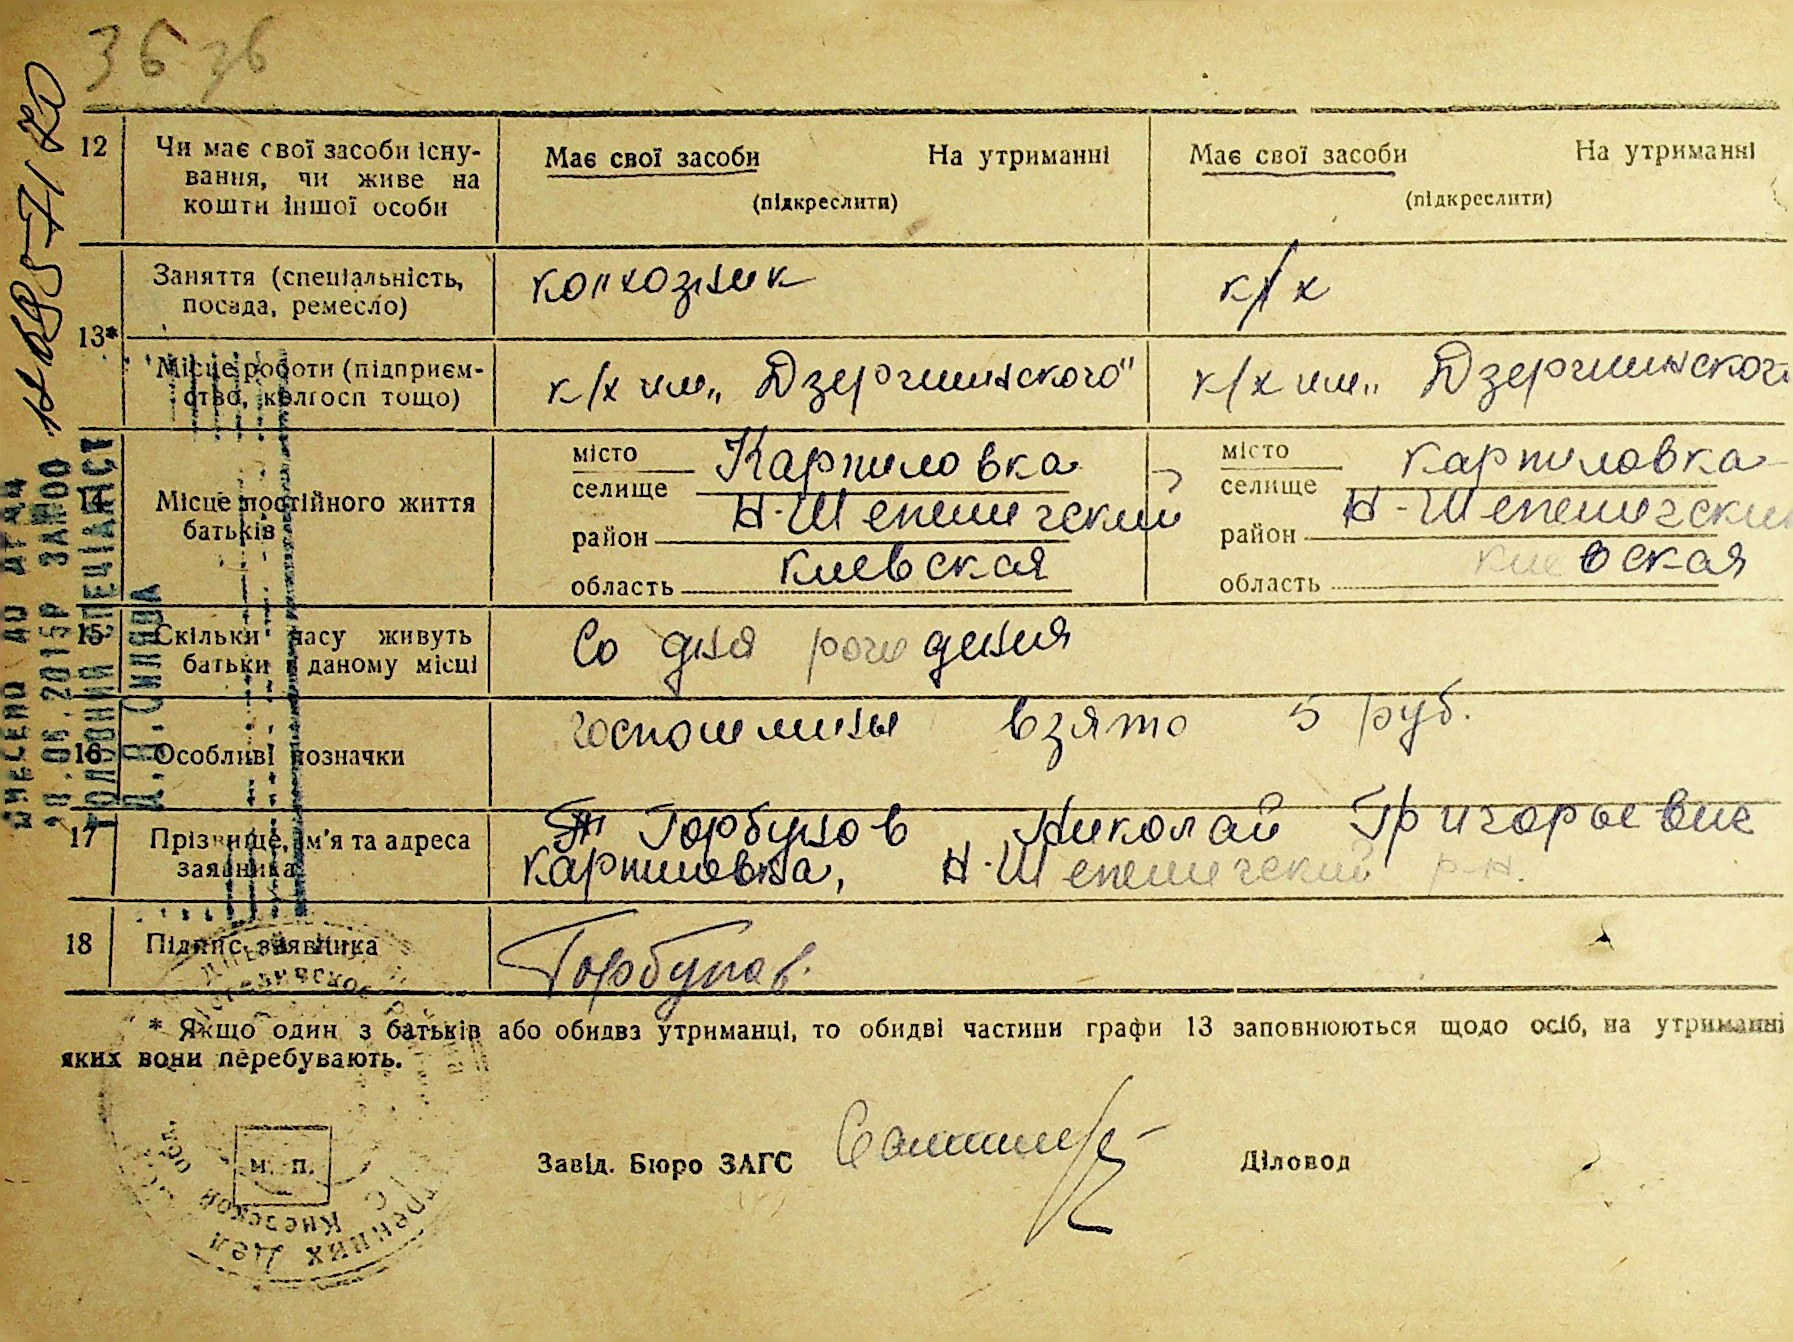 36 36
12 Чи має свої засоби існу- Має свої засоби На утриманні Має свої засоби На утриманні
вання, чи живе на
кошти іншої особи (підкреслити) (підкреслити)
13* Заняття (спеціальність, колхозник к/х
посада, ремесло)
Місце роботи (підприєм- к/х им „Дзержинского" к/х им „Дзержинского
ство, колгосп тощо)
14 Місце постійного життя місто Карпиловка місто Карпиловка
батьків селище селище
район Н-Шепеличский район Н-Шепеличский
область Киевская область Киевская
15 Скільки часу живуть Со дня рождения
батьки в даному місці
16 Особливі позначки госпошлины взято 5 руб.
17 Прізвище, ім'я та адреса Горбунов Николай Григорьевич
заявника Карпиловка, Н-Шепеличский р-н.
18 Підпис заявника Горбунов.
* Якщо один з батьків або обидвз утриманці, то обидві частини графи 13 заповнюються щодо осіб, на утриманні
яких вони перебувають.
м. п. Завід. Бюро ЗАГС Діловод
ВНЕСЕНО ДО ДРАЦ
ГОЛОВНИЙ СПЕЦІАЛІСТ
Киевской обл.
Внутренних Дел